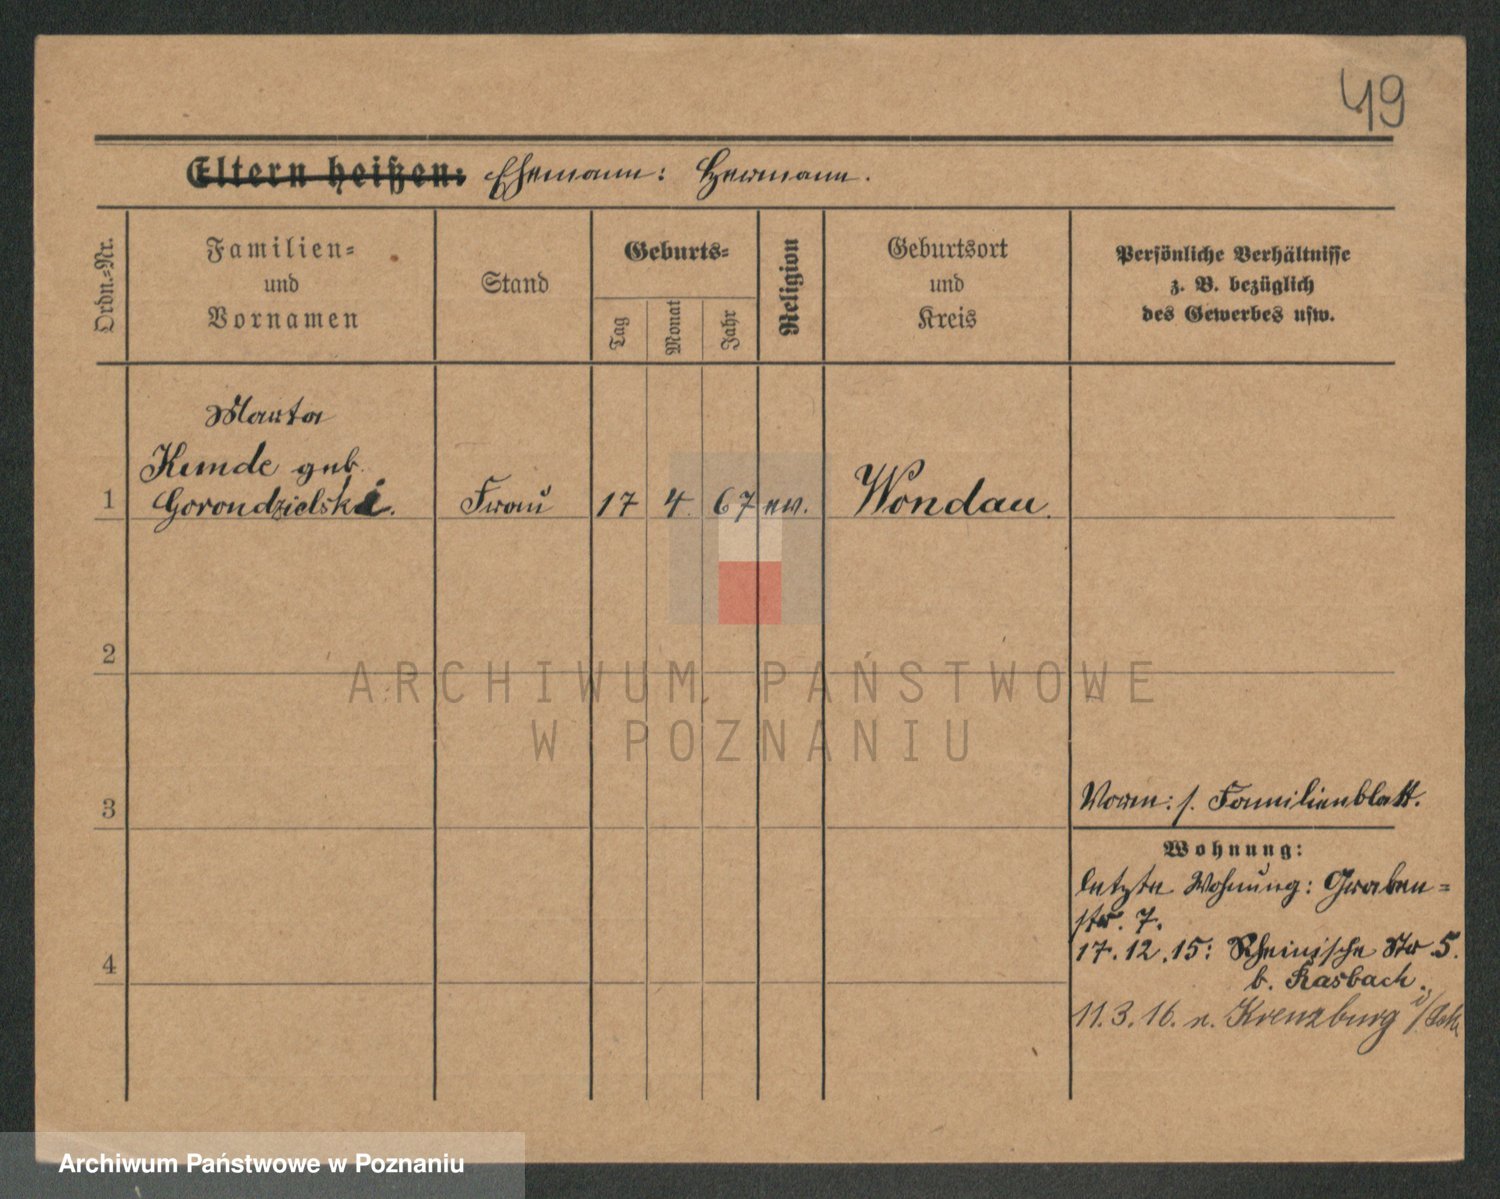 49
Eltern heißen: Ehemann: Hermann.
Ordn.=Nr.
Familien=
und
Vornamen
Stand
Geburts=
Tag
Monat
Jahr
Religion
Geburtsort
und
Kreis
Persönliche Verhältnisse
z. B. bezüglich
des Gewerbes usw.
Marta
Kemde geb.
1 Gorondzielski. Frau 17 4. 67 ev. Wondau.
2
3
Verm: s. Familienblatt.
Wohnung:
letzte Wohnung: Graben=
str. 7.
17.12.15: Rheinische Str 5.
4
b. Kasbach.
11.3.16. n. Kreuzburg
ARCHIWUM PAŃSTWOWE
W POZNANIU
Archiwum Państwowe w Poznaniu